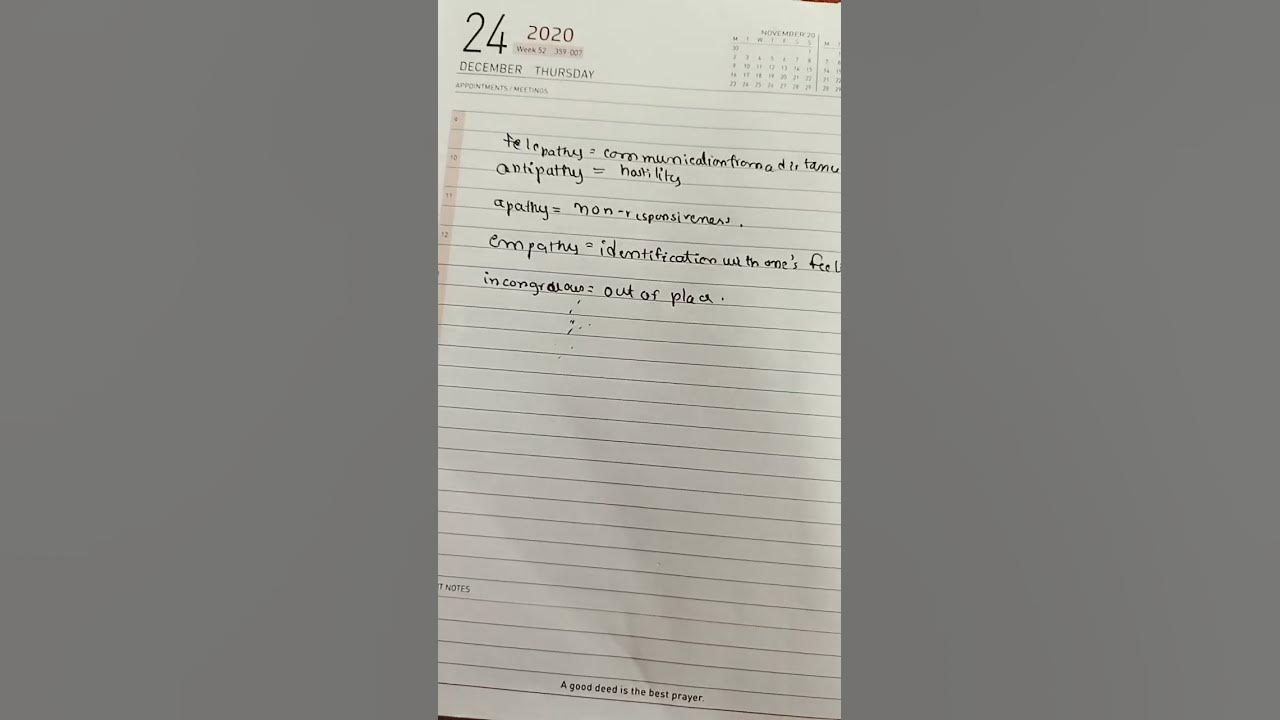 24 2020
Week 52 359-007
DECEMBER THURSDAY
APPOINTMENTS / MEETINGS
NOVEMBER 20
M T W T F S S
30 1
2 3 4 5 6 7 8
9 10 11 12 13 14 15
16 17 18 19 20 21 22
23 24 25 26 27 28 29
9
telepathy = communication from a distance
10
antipathy = hostility
11
apathy = non-responsiveness.
12
empathy = identification with one's feel
incongruous = out of place.
T NOTES
A good deed is the best prayer.